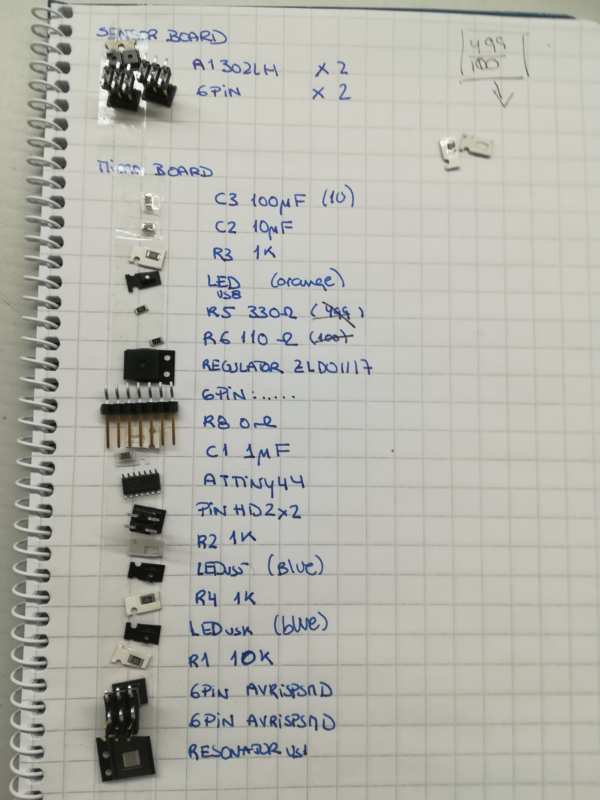 SENSOR BOARD
A1302LH x2
6PIN x2
499
100
MICRO BOARD
C3 100µF (10)
C2 10µF
R3 1K
LED (orange)
USB
R5 330Ω (499)
R6 110Ω (100)
REGULATOR ZLDO1117
6PIN:.....
R8 0Ω
C1 1µF
ATTINY44
PIN HD2x2
R2 1K
LED (Blue)
R4 1K
LED (blue)
R1 10K
6PIN AVRISPSMD
6PIN AVRISPSMD
RESONATOR